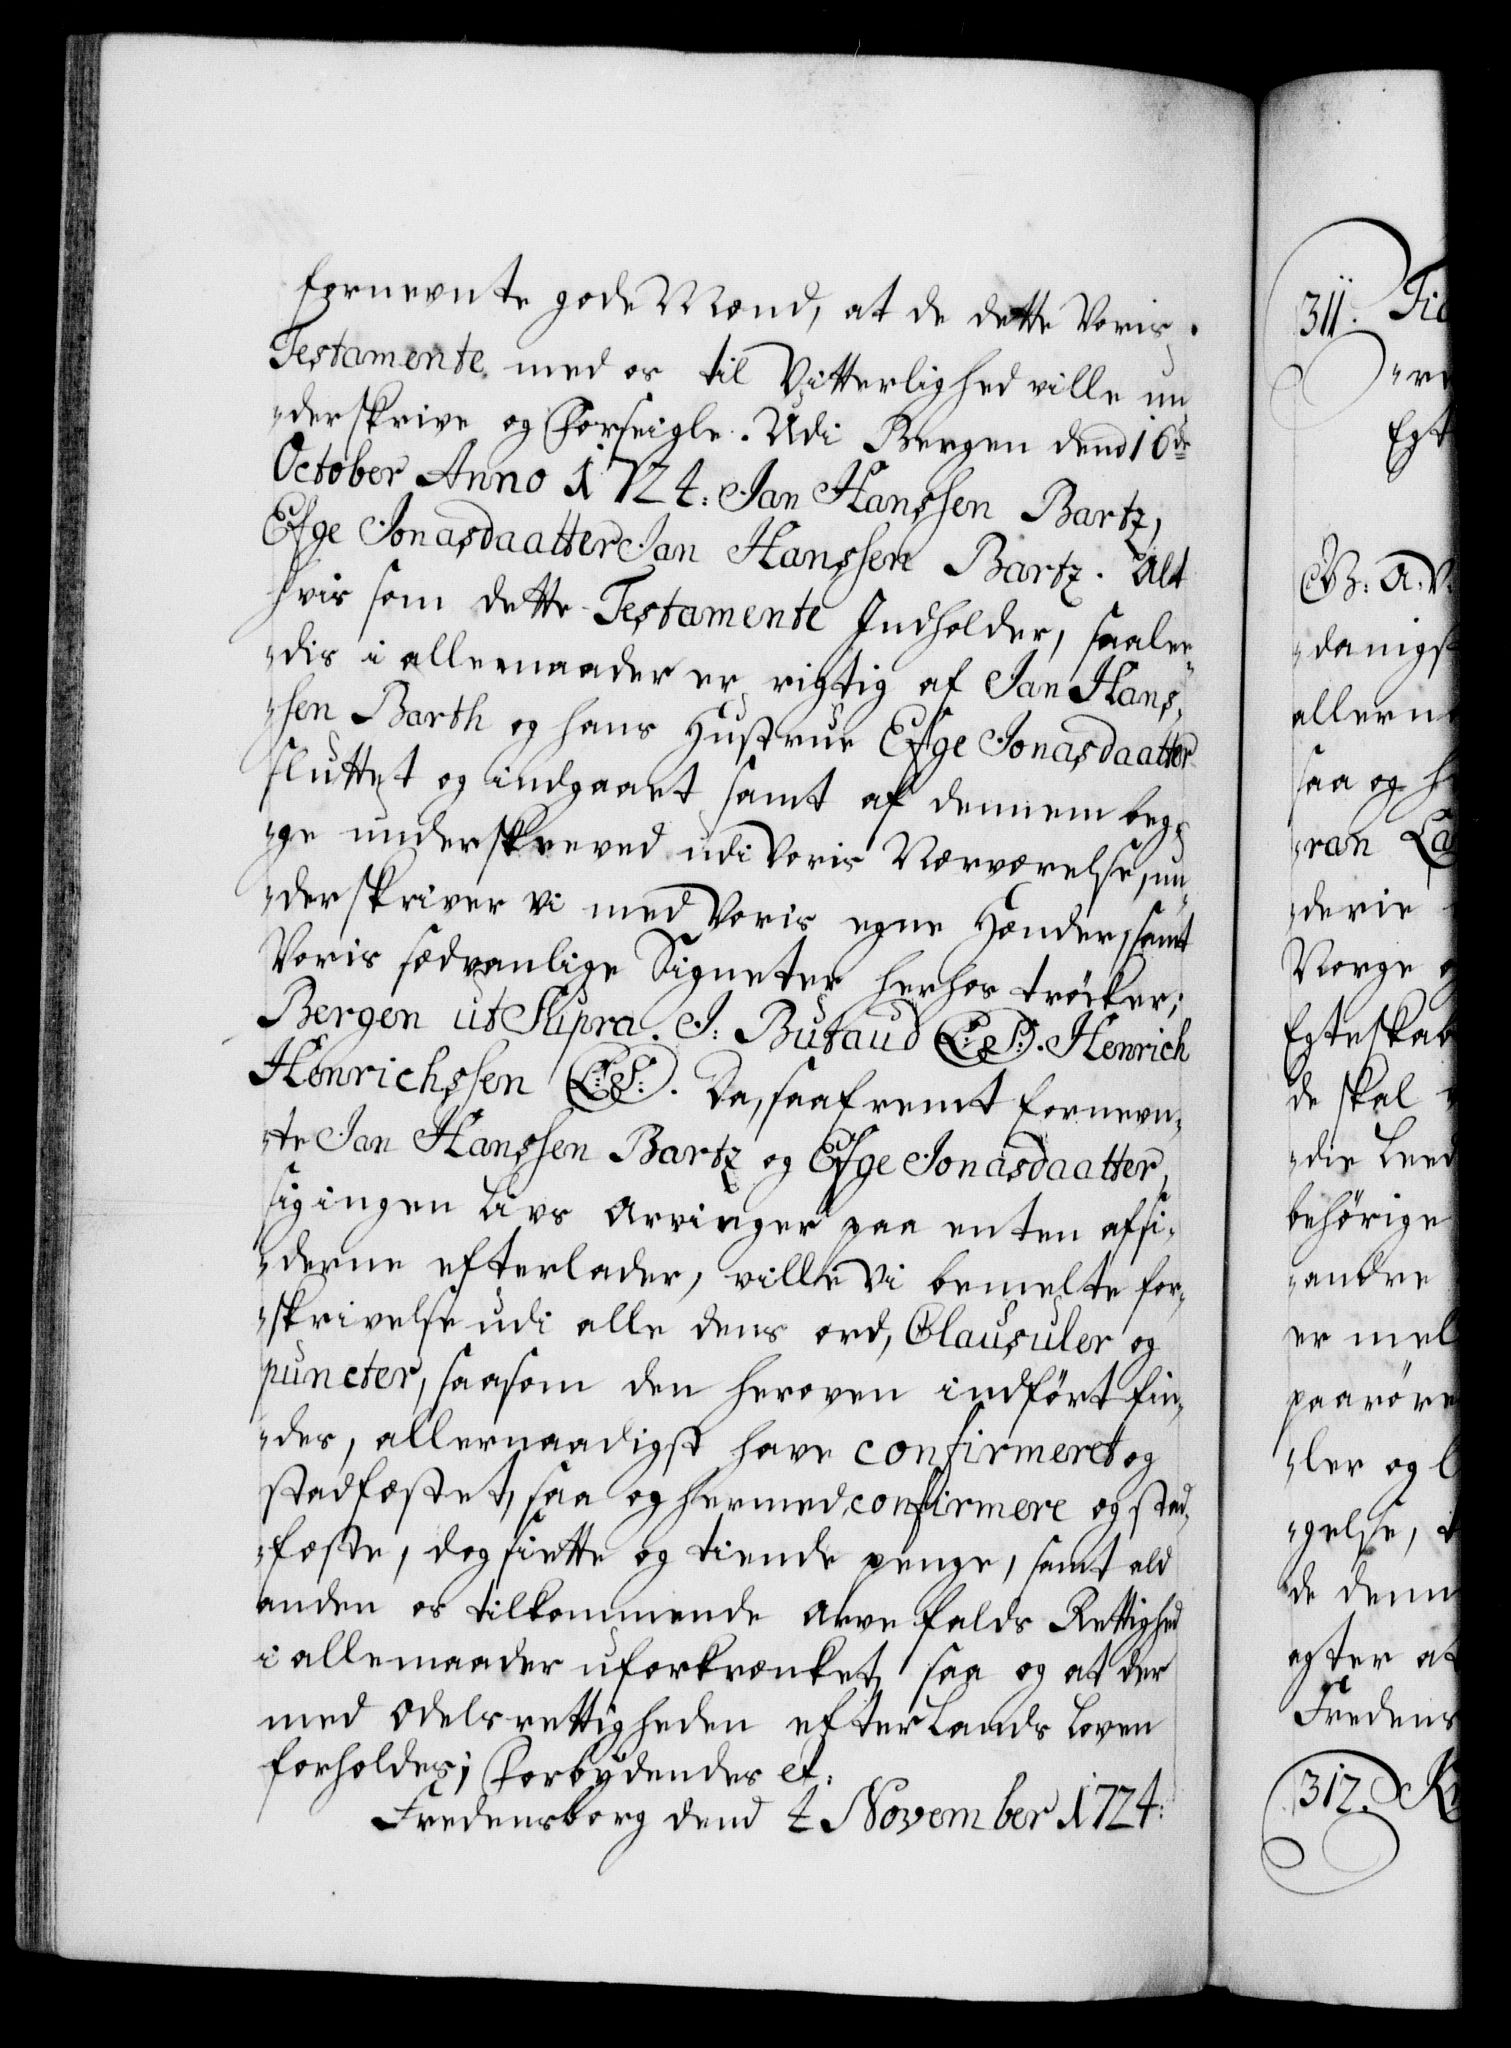 fornevnte gode Mænd, at de dette Voris
Testamente med os til Vitterlighed ville un
-derskrive og Forseigle. Udi Bergen dend 16de
October Anno 1724. Jan Hanssen Bartz,
Elsge Jonasdaatter Jan Hanssen Bartz. Alt
hvis som dette Testamente Indholder, saale-
-dis i allemaader er rigtig af Jan Hans-
-sen Barth og hans Hustrue Elsge Jonasdaatter
sluttet og indgaaet samt af dennem beg-
-ge underskreved udi Voris Nærværelse, un-
-derskriver vi med Voris egne Hænder, samt
Voris sædvanlige Signeter herhos trÿcker;
Bergen ut Supra. J: Butaud (L:S:). Henrich
Henrichssen (L:S:). Da, saafremt fornevn-
-te Jan Hanssen Bartz og Elsge Jonasdaatter,
sig ingen Livs Arvinger paa en ten af si-
-derne efterlader, ville Vi bemelte for-
-skrivelse udi alle dens ord, Clausuler og
puncter, saasom den heroven indført fin-
-des, allernaadigst have confirmeret og
stadfæstet, saa og hermed confirmere og stad-
-fæste, dog siette og tiende penge, samt ald
anden os tilkommende Arvefalds Rettighed
i allemaader uforkrænket, saa og at der
med Odelsrettigheden efter Lands Loven
forholdes; Forbydendes etc:
Fredensborg dend 4 November 1724:
311. Tid
-re
Egt
Gr: A. V.
-danigst
allerna
saa og h
-ran La
-derie
Norge o
Egteskab
de skal
-die Leed
behørige
-andre
er mel
paarøre
-ler og l
-gelse, t
de denn
agter at
Fredens
312. Kr